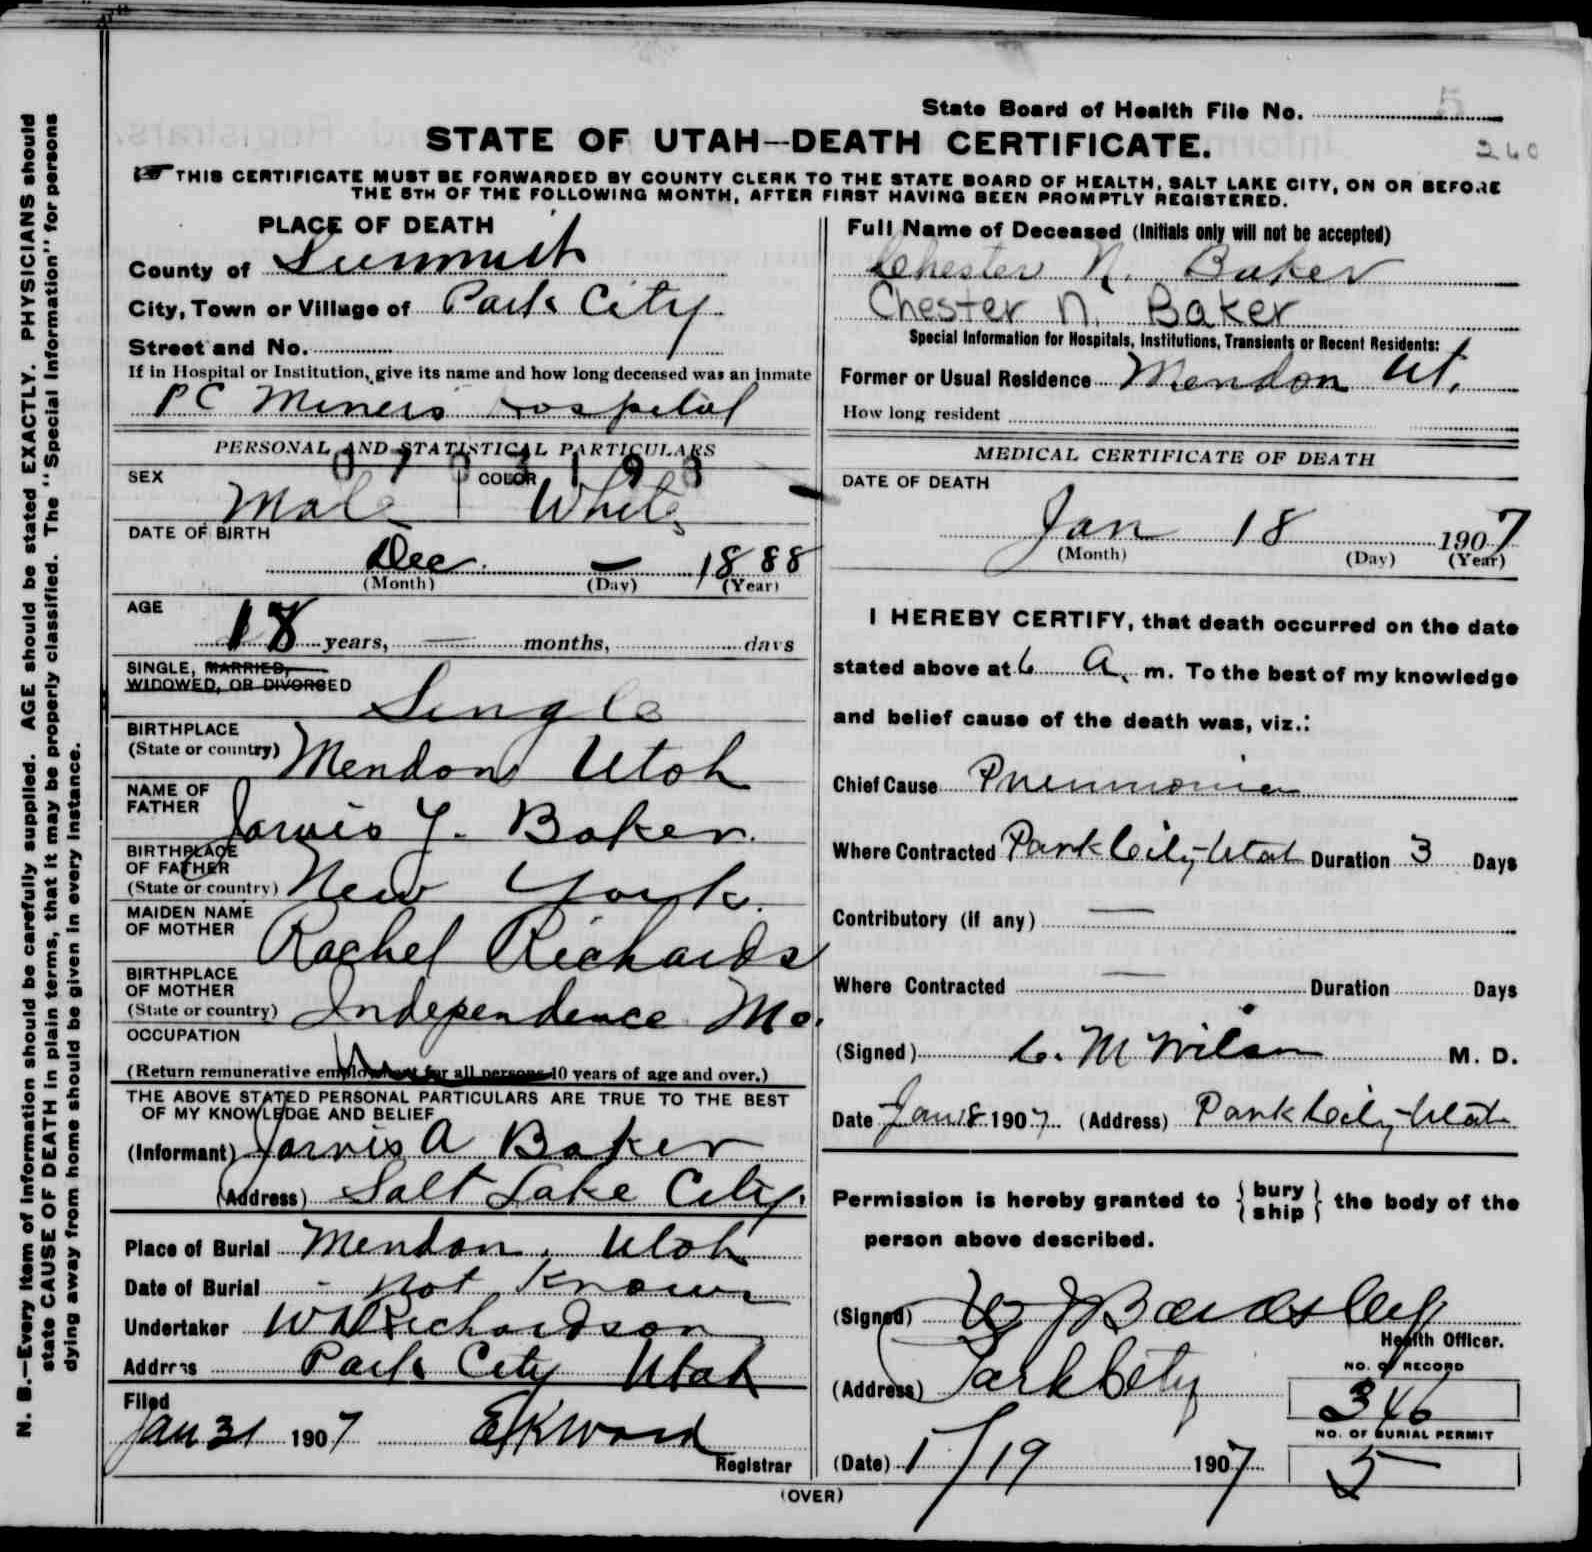 State Board of Health File No. 5
260
STATE OF UTAH—DEATH CERTIFICATE.
THIS CERTIFICATE MUST BE FORWARDED BY COUNTY CLERK TO THE STATE BOARD OF HEALTH, SALT LAKE CITY, ON OR BEFORE
THE 5TH OF THE FOLLOWING MONTH, AFTER FIRST HAVING BEEN PROMPTLY REGISTERED.
N. B.—Every item of information should be carefully supplied. AGE should be stated EXACTLY. PHYSICIANS should
state CAUSE OF DEATH in plain terms, that it may be properly classified. The "Special Information" for persons
dying away from home should be given in every instance.
PLACE OF DEATH
County of Summit
City, Town or Village of Park City
Street and No.
If in Hospital or Institution, give its name and how long deceased was an inmate
PC Miners Hospital
PERSONAL AND STATISTICAL PARTICULARS
SEX Male COLOR White
DATE OF BIRTH
Dec. — 1888
(Month) (Day) (Year)
AGE
18 years, — months, days
SINGLE, MARRIED,
WIDOWED, OR DIVORCED
Single
BIRTHPLACE
(State or country) Mendon Utah
NAME OF
FATHER Jarvis Y. Baker.
BIRTHPLACE
OF FATHER
(State or country) New York.
MAIDEN NAME
OF MOTHER Rachel Richards
BIRTHPLACE
OF MOTHER
(State or country) Independence Mo.
OCCUPATION
(Return remunerative employment for all persons 10 years of age and over.)
THE ABOVE STATED PERSONAL PARTICULARS ARE TRUE TO THE BEST
OF MY KNOWLEDGE AND BELIEF
(Informant) Jarvis A Baker
(Address) Salt Lake City.
Place of Burial Mendon, Utah
Date of Burial - not Known
Undertaker W D Richardson
Address Park City Utah
Filed
Jan 31 1907 Registrar
Full Name of Deceased (Initials only will not be accepted)
Chester N. Baker
Chester N. Baker
Special Information for Hospitals, Institutions, Transients or Recent Residents:
Former or Usual Residence Mendon Ut.
How long resident
MEDICAL CERTIFICATE OF DEATH
DATE OF DEATH
Jan 18 1907
(Month) (Day) (Year)
I HEREBY CERTIFY, that death occurred on the date
stated above at 6 A. m. To the best of my knowledge
and belief cause of the death was, viz.:
Chief Cause Pneumonia
Where Contracted Park City-Utah Duration 3 Days
Contributory (if any) —
Where Contracted — Duration Days
(Signed) C. M Wilson M. D.
Date Jan 18 1907 (Address) Park City-Utah
Permission is hereby granted to { bury
ship } the body of the
person above described.
(Signed) J Beardsley
Health Officer.
(Address) Park City
NO. OF RECORD
346
NO. OF BURIAL PERMIT
5
(Date) 1/19 1907
(OVER)